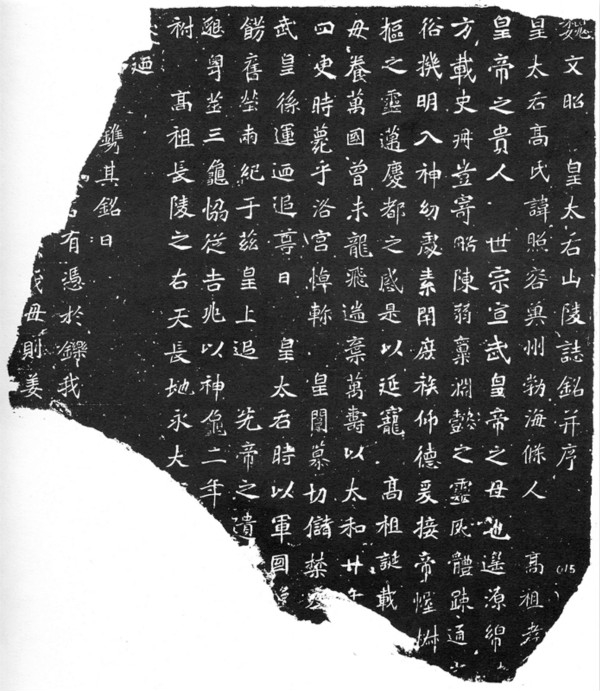 魏文昭 皇太后山陵誌銘并序
皇太后高氏諱照容冀州勃海條人 高祖孝
皇帝之貴人 世宗宣武皇帝之母也遥源綿
方載史冊豈寄略陳弱稟淵懿之靈夙體踈通
俗機明入神幼處素閈庶族仰德爰接帝幄
樞之靈邁慶都之感是以延寵 高祖誕載
母養萬國曾未龍飛遄棄萬壽以太和廿年
四更時薨乎洛宮悼軫 皇闈慕切儲禁
武皇係運迺追尊曰 皇太后時以軍國
餝舊塋兩紀于茲皇上追 先帝之遺
塋三龜恊從吉兆以神龜二年
祔 高祖長陵之右天長地永大
迺
鐫其銘曰
有憑於鑠我
母則姜